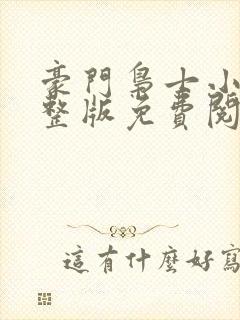 豪門梟士小
整版免費閱
這有什麼好寫